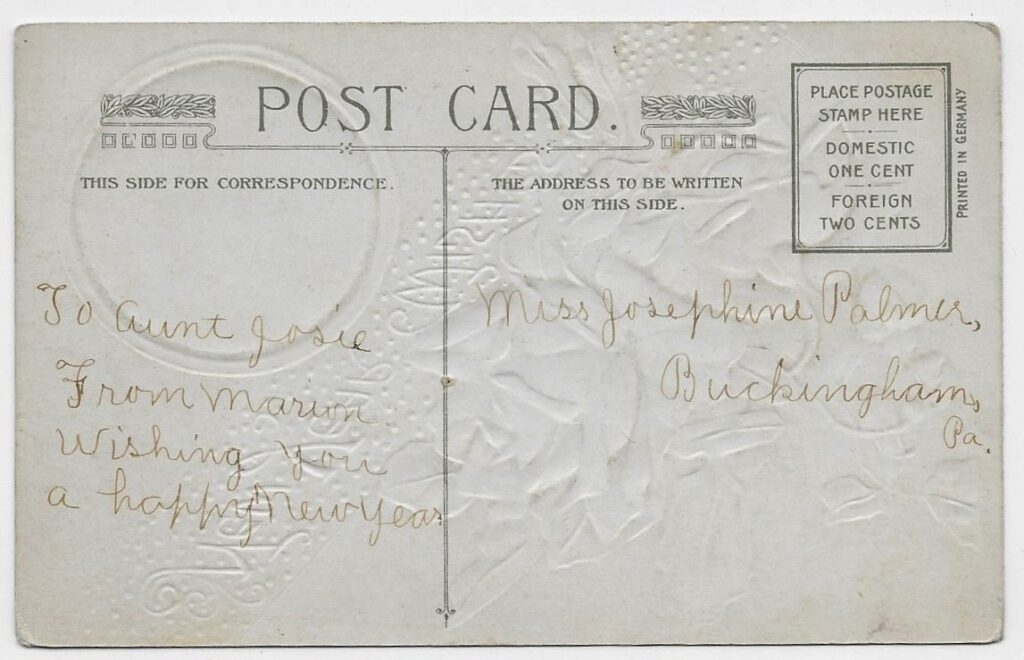 POST CARD.
THIS SIDE FOR CORRESPONDENCE.
To Aunt Josie
From Marion
Wishing You
a happy New Year
THE ADDRESS TO BE WRITTEN
ON THIS SIDE.
Miss Josephine Palmer,
Buckingham,
Pa.
PLACE POSTAGE
STAMP HERE
DOMESTIC
ONE CENT
FOREIGN
TWO CENTS
PRINTED IN GERMANY